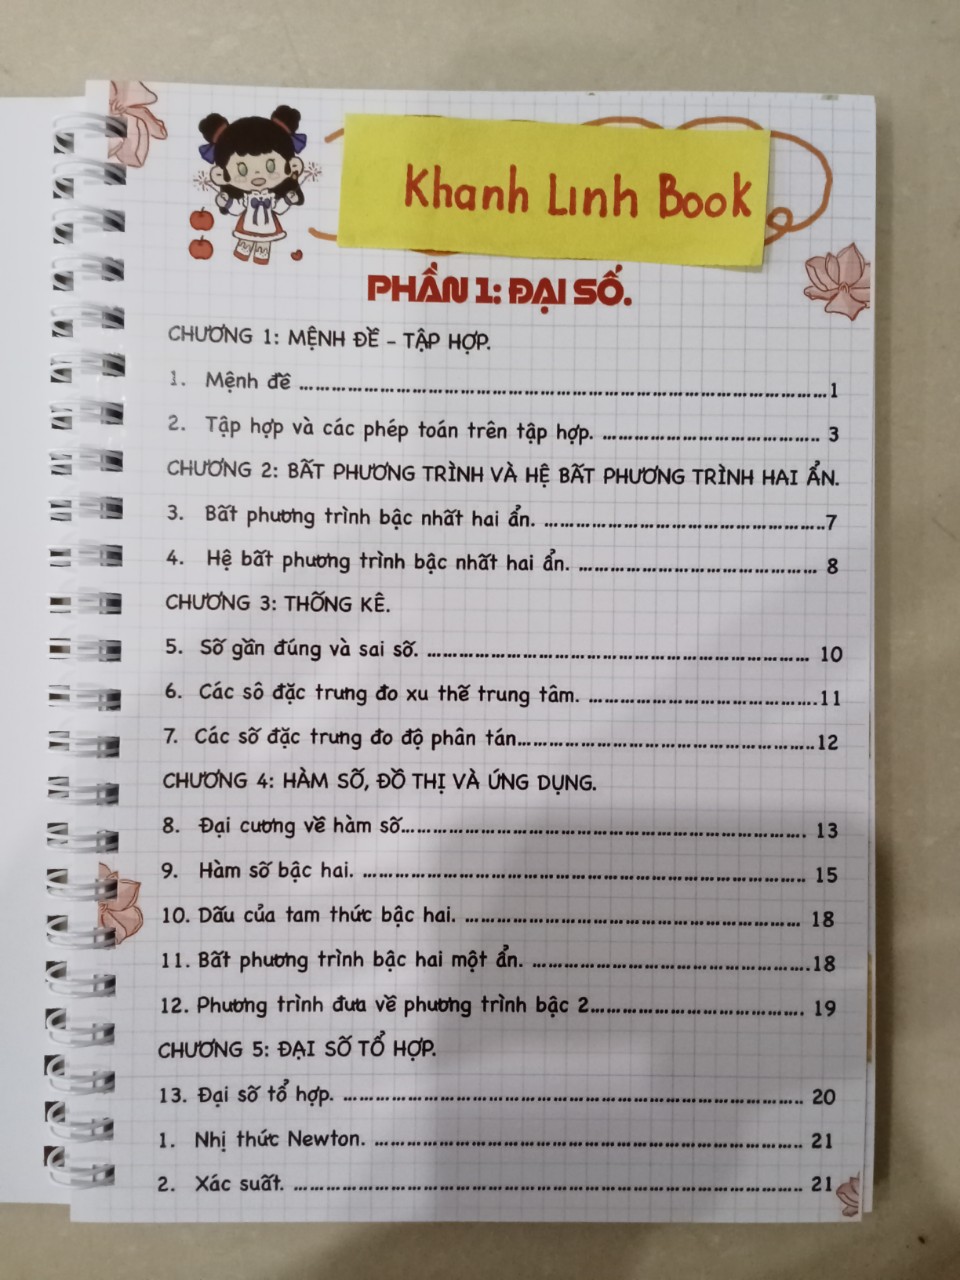 Khanh Linh Book
PHẦN 1: ĐẠI SỐ.
CHƯƠNG 1: MỆNH ĐỀ - TẬP HỢP.
1. Mệnh đề ........................................................................1
2. Tập hợp và các phép toán trên tập hợp. .............................. 3
CHƯƠNG 2: BẤT PHƯƠNG TRÌNH VÀ HỆ BẤT PHƯƠNG TRÌNH HAI ẨN.
3. Bất phương trình bậc nhất hai ẩn. .......................................7
4. Hệ bất phương trình bậc nhất hai ẩn. ................................. 8
CHƯƠNG 3: THỐNG KÊ.
5. Số gần đúng và sai số. .................................................... 10
6. Các sô đặc trưng đo xu thế trung tâm. ................................11
7. Các số đặc trưng đo độ phân tán.........................................12
CHƯƠNG 4: HÀM SỐ, ĐỒ THỊ VÀ ỨNG DỤNG.
8. Đại cương về hàm số........................................................ 13
9. Hàm số bậc hai. ............................................................. 15
10. Dấu của tam thức bậc hai. .............................................. 18
11. Bất phương trình bậc hai một ẩn. ......................................18
12. Phương trình đưa về phương trình bậc 2............................. 19
CHƯƠNG 5: ĐẠI SỐ TỔ HỢP.
13. Đại số tổ hợp. ............................................................... 20
1. Nhị thức Newton. ........................................................... 21
2. Xác suất. ...................................................................... 21